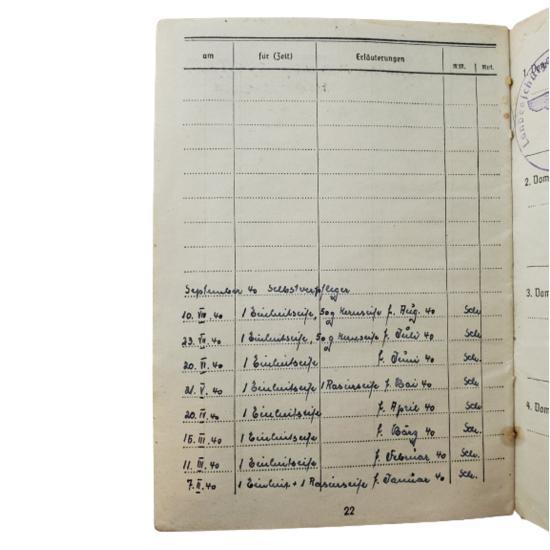 am für (Zeit) Erläuterungen RM. Rpf.
September 40 Selbstverpfleger
10. VIII. 40 1 Einheitsseife, 50 g Kernseife f. Aug. 40 Sch.
23. VII. 40 1 Einheitsseife, 50 g Kernseife f. Juli 40 Sch.
20. VI. 40 1 Einheitsseife f. Juni 40 Sch.
21. V. 40 1 Einheitsseife 1 Rasierseife f. Mai 40 Sch.
20. IV. 40 1 Einheitsseife f. April 40 Sch.
15. III. 40 1 Einheitsseife f. März 40 Sch.
11. III. 40 1 Einheitsseife f. Februar 40 Sch.
7. II. 40 1 Einheit. + 1 Rasierseife f. Januar 40 Sch.
22
1.
2. Dom
3. Dom
4. Dom